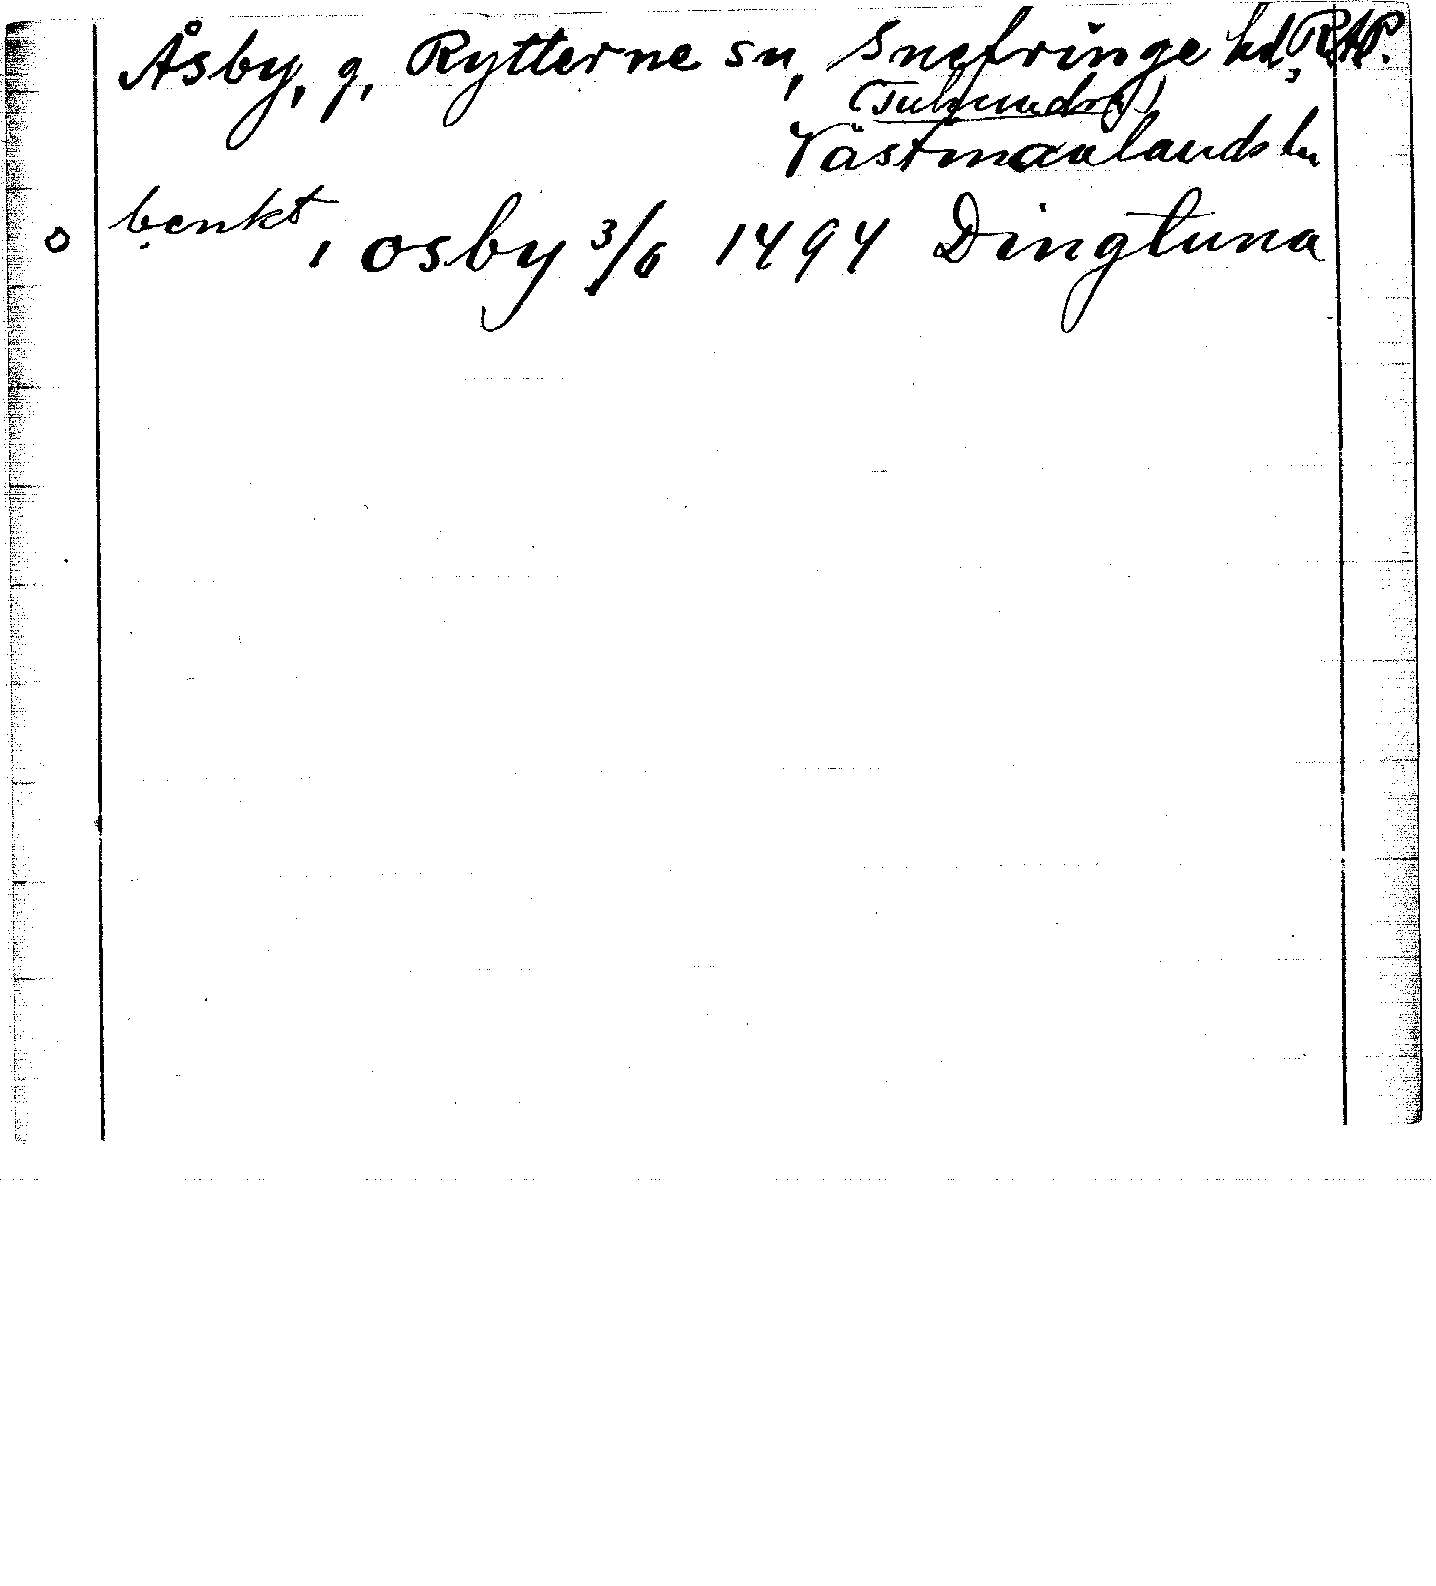 Åsby, g, Rytterne sn, Snefringe hd, RAP.
(Tuhundra)
Västmanlands ln
o benkt i osby 3/6 1494 Dingtuna